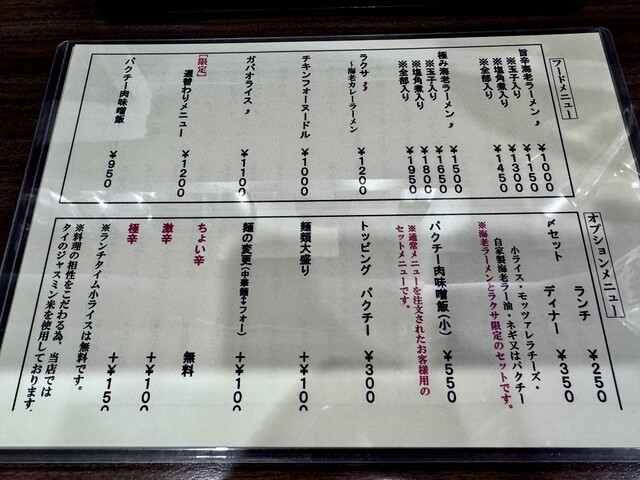 フードメニュー
旨辛海老ラーメン ¥1000
※玉子入り ¥1150
※塩角煮入り ¥1300
※全部入り ¥1450
極み海老ラーメン ¥1500
※玉子入り ¥1650
※塩角煮入り ¥1800
※全部入り ¥1950
ラクサ ¥1200
~海老カレーラーメン
チキンフォーヌードル ¥1000
ガパオライス ¥1100
[限定]
週替わりメニュー ¥1200
パクチー肉味噌飯 ¥950
オプションメニュー
ランチ ¥250
〆セット ディナー ¥350
小ライス・モッツァレラチーズ・
自家製海老ラー油・ネギ又はパクチー
※海老ラーメンとラクサ限定のセットです。
パクチー肉味噌飯(小) ¥550
※通常メニューを注文されたお客様用の
セットメニューです。
トッピング パクチー ¥300
麺類大盛り +¥100
麺の変更(中華麺↔フォー) +¥100
ちょい辛 無料
激辛 +¥100
極辛 +¥150
※ランチタイム小ライスは無料です。
※料理の相性をこだわる為、当店では
タイのジャスミン米を使用しております